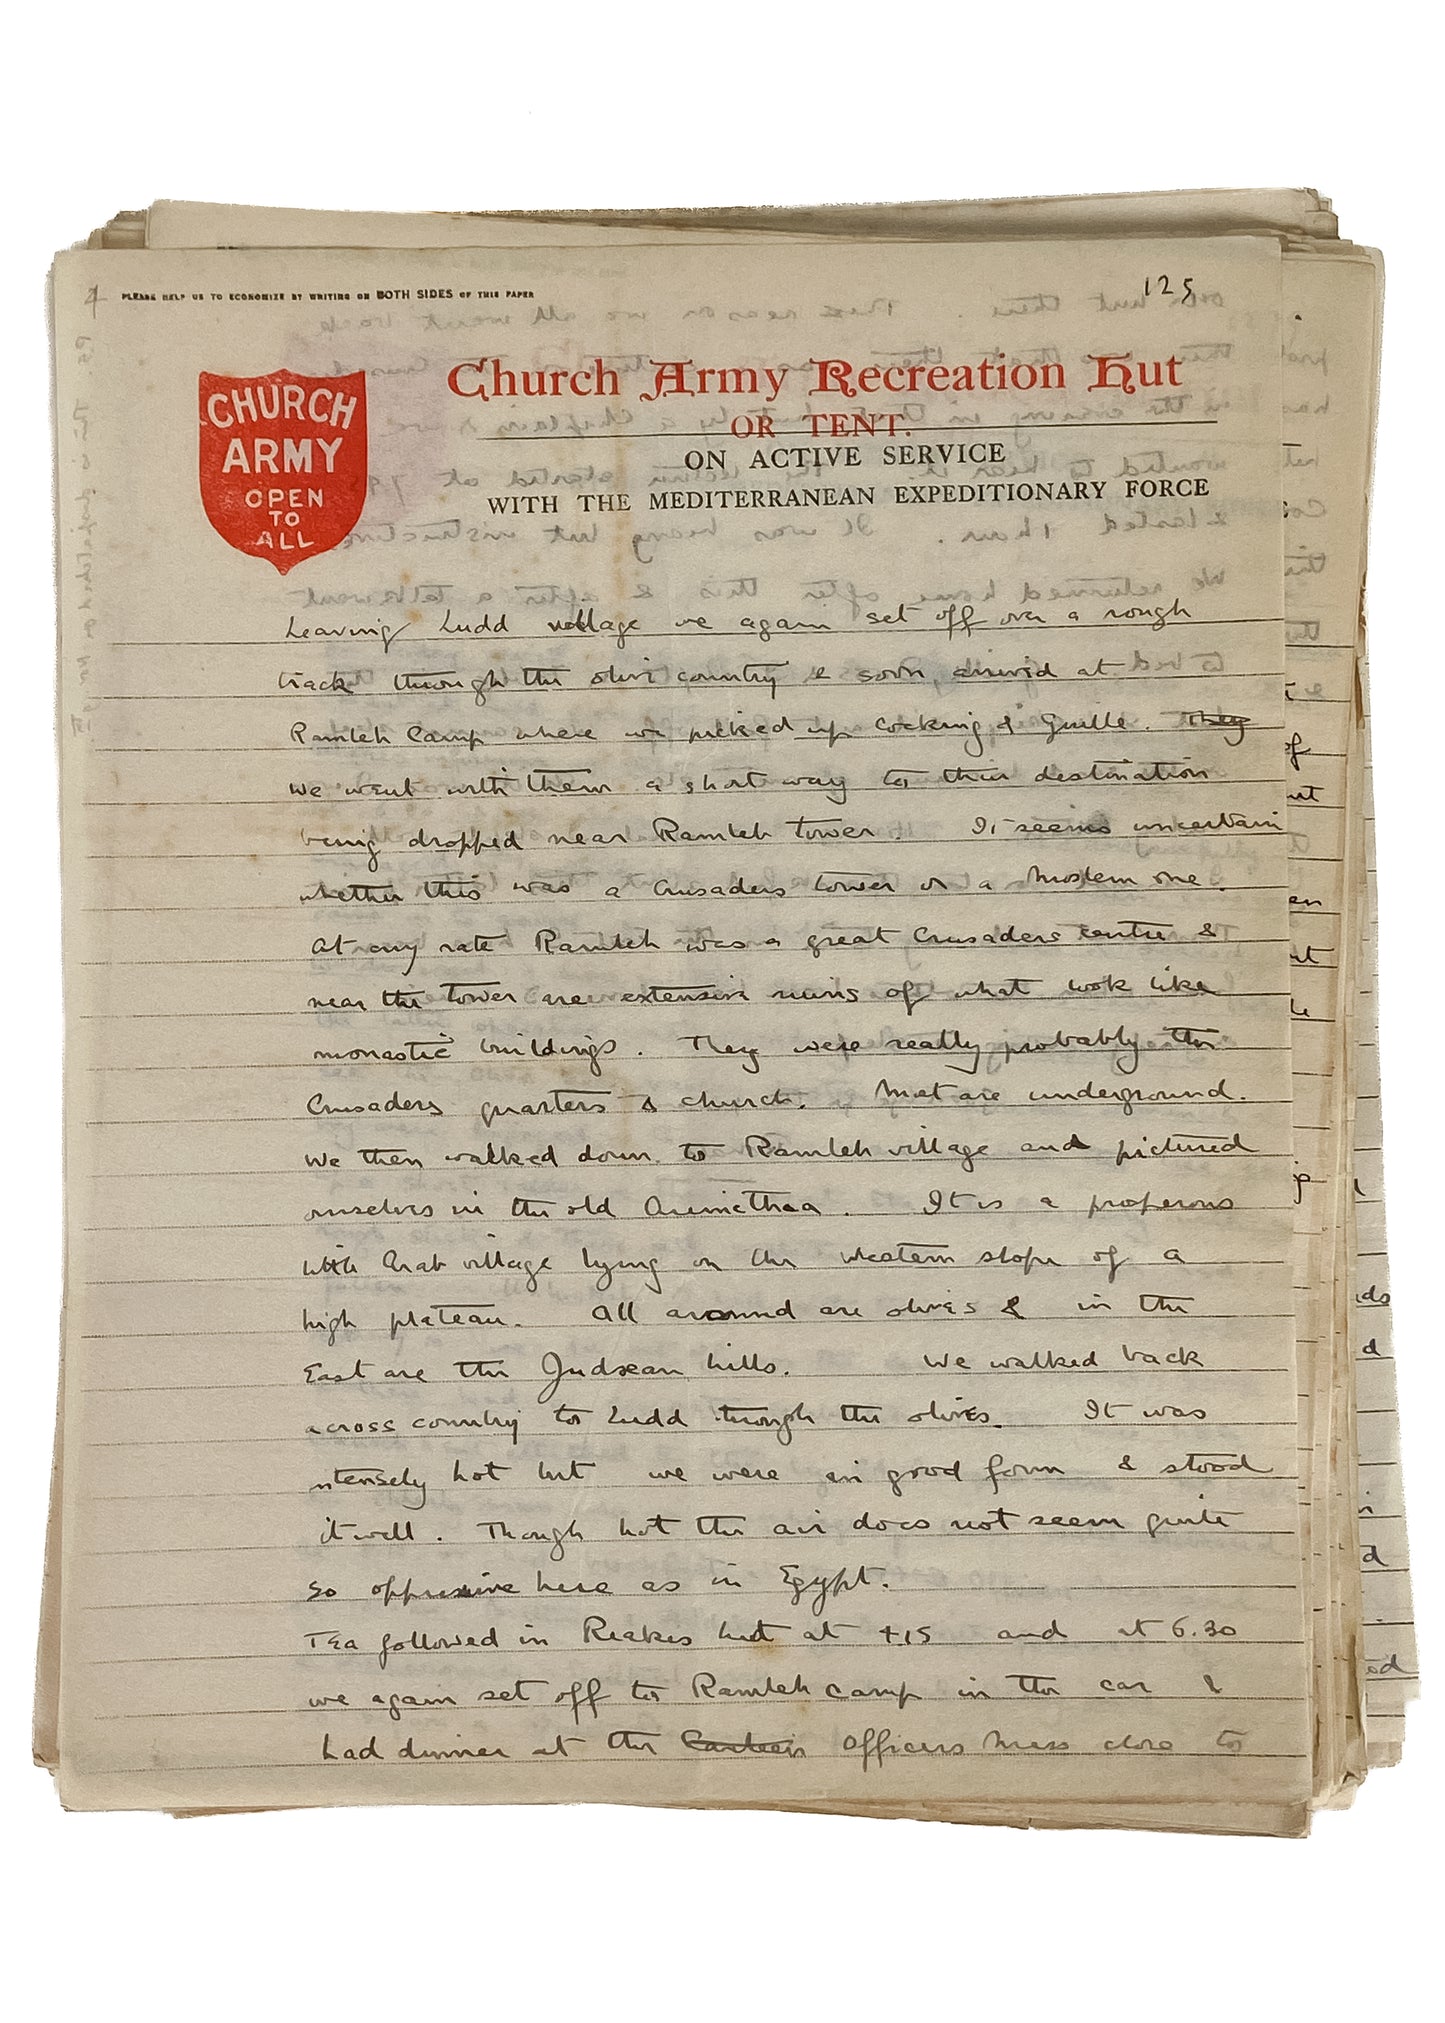 4 PLEASE HELP US TO ECONOMIZE BY WRITING ON BOTH SIDES OF THIS PAPER
125
CHURCH
ARMY
OPEN
TO
ALL
Church Army Recreation Hut
OR TENT.
ON ACTIVE SERVICE
WITH THE MEDITERRANEAN EXPEDITIONARY FORCE
Leaving Ludd village we again set off over a rough
track through the olive country & soon arrived at
Ramleh Camp where we picked up Cocking & Guille. They
we went with them a short way to their destination
being dropped near Ramleh tower. It seems uncertain
whether this was a Crusaders tower or a Moslem one.
At any rate Ramleh was a great Crusaders centre &
near the tower are extensive ruins of what look like
monastic buildings. They were really probably the
Crusaders quarters & church. Most are underground.
We then walked down to Ramleh village and pictured
ourselves in the old Arimathaa. It is a properous
little Arab village lying on the western slope of a
high plateau. All around are olives & in the
East are the Judaean hills. We walked back
across country to Ludd through the olives. It was
intensely hot but we were in good form & stood
it well. Though hot the air does not seem quite
so oppressive here as in Egypt.
Tea followed in Reakes hut at 4.15 and at 6.30
we again set off to Ramleh camp in the car &
had dinner at the Canteen Officers Mess close to